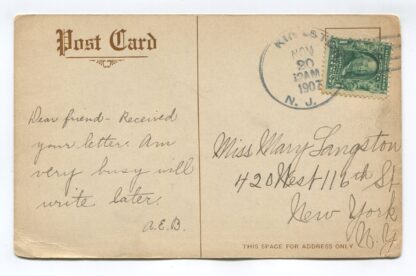 Post Card
NOV
20
12AM
1907
N. J.
Dear friend - Received
your letter. Am
very busy will
write later.
A.E.B.
Miss Mary Langston
420 West 116th St
New York
N.Y
THIS SPACE FOR ADDRESS ONLY